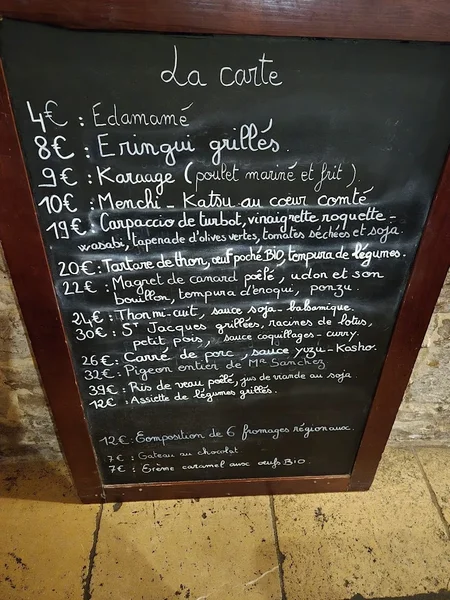 La carte
4€ : Edamamé
8€ : Eringui grillés.
9€ : Karaage (poulet mariné et frit).
10€ : Menchi - Katsu au cœur comté
19€ : Carpaccio de turbot, vinaigrette roquette -
wasabi, tapenade d'olives vertes, tomates séchées et soja.
20€ : Tartare de thon, œuf poché BIO, tempura de légumes.
22€ : Magret de canard poêlé, udon et son
bouillon, tempura d'enoqui, ponzu.
24€ : Thon mi-cuit, sauce soja - balsamique.
30€ : St Jacques grillées, racines de lotus,
petit pois, sauce coquillages - curry.
26€ : Carré de porc, sauce yuzu - Kosho.
32€ : Pigeon entier de Mr Sanchez
39€ : Ris de veau poêlé, jus de viande au soja.
12€ : Assiette de légumes grillés.
12€ : Composition de 6 fromages régionaux.
7€ : Gateau au chocolat
7€ : Crème caramel aux œufs BIO.